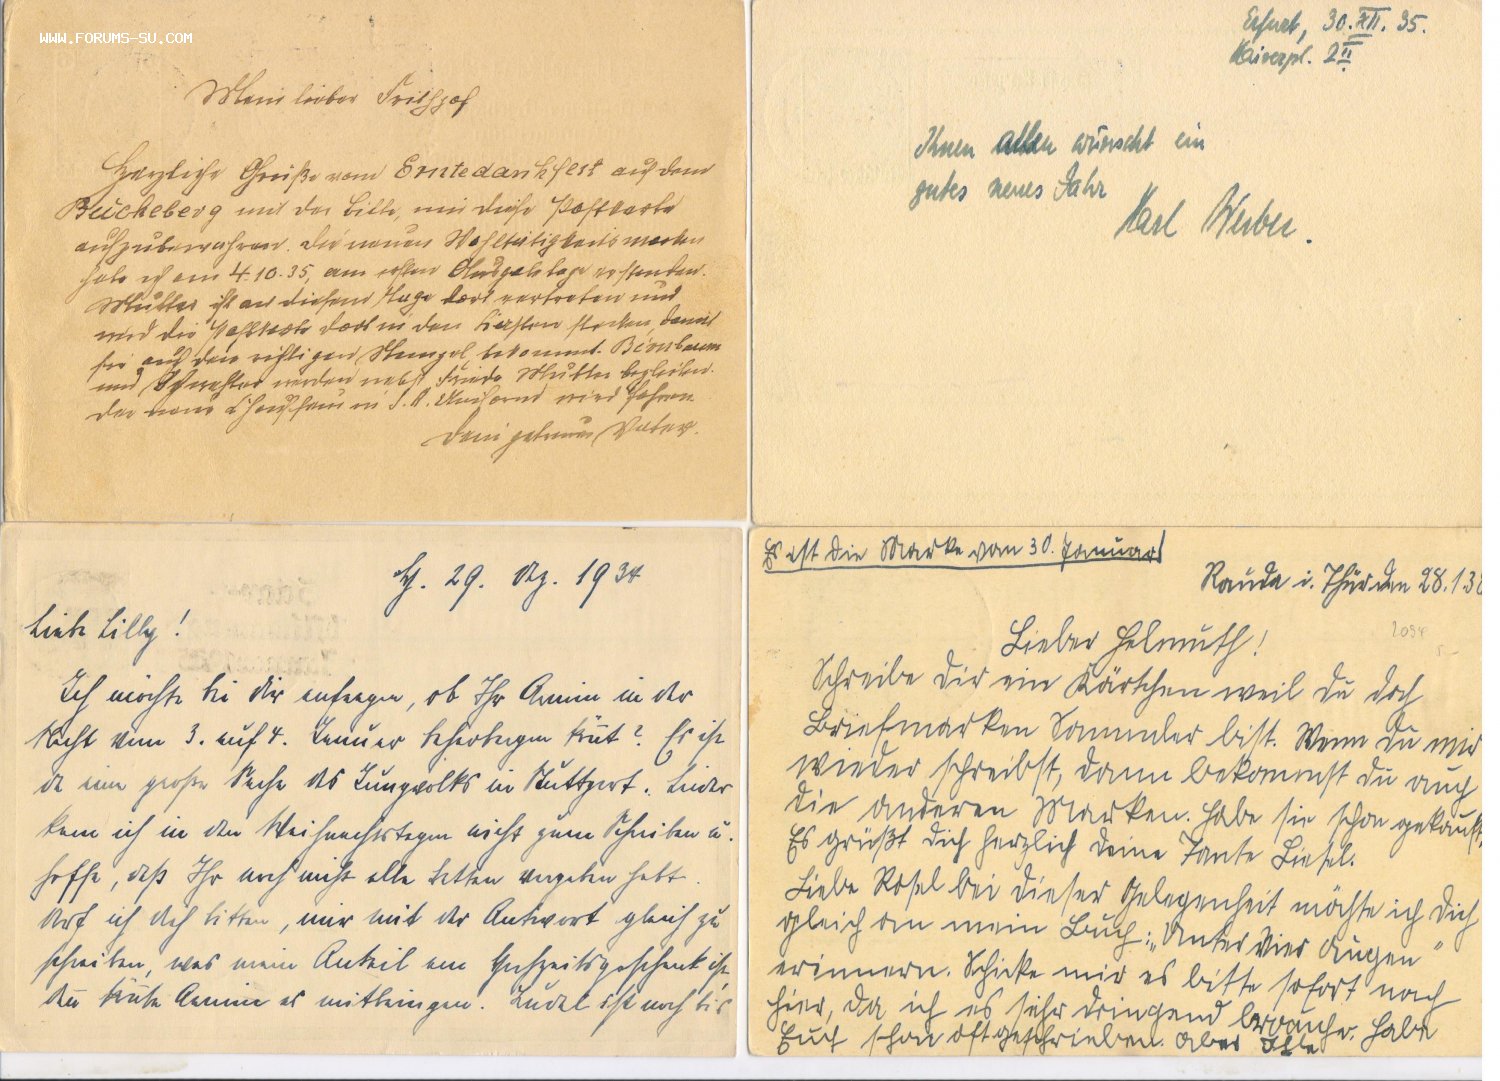 WWW.FORUMS-SU.COM
Mein lieber Frithjof
Herzliche Grüße vom Erntedankfest auf dem
Bückeberg mit der Bitte, mir diese Postkarte
aufzubewahren. Die neuen Wohltätigkeitsmarken
habe ich am 4.10.35, am ersten Ausgabetage erstanden.
Mutter ist an diesem Tage dort vertreten und
wird die Postkarte dort in den Kasten stecken, damit
sie auch den richtigen Stempel bekommt. Birnbaum
und Schwester werden nebst Frieda Mutter begleiten.
Der neue Chauffeur in S.A. Uniform wird fahren.
Dein getreuer Vater.
Erfurt, 30.XII.35.
2II
Ihnen allen wünscht ein
gutes neues Jahr
Karl Weber.
29. Dez. 1934
Liebe Lilly!
Ich möchte bei Dir anfragen, ob Ihr Armin in der
Nacht vom 3. auf 4. Januar beherbergen könnt? Es ist
da eine große Sache des Jungvolks in Stuttgart. Leider
kam ich in den Weihnachtstagen nicht zum Schreiben u.
hoffe, daß Ihr noch nicht alle Betten vergeben habt.
Darf ich Dich bitten, mir mit der Antwort gleich zu
schreiben, was mein Anteil am Hochzeitsgeschenk ist
Du könnte Armin es mitbringen. ist noch bis
Es ist die Marke vom 30. Januar!
Rauda i. Thür den 28.1.38
Lieber Helmuth!
Schreibe Dir ein Kärtchen weil Du doch
Briefmarken Sammler bist. Wenn Du mir
wieder schreibst, dann bekommst Du auch
die anderen Marken. Habe sie schon gekauft.
Es grüßt Dich herzlich Deine Tante Liesel.
Liebe Rosel bei dieser Gelegenheit möchte ich Dich
gleich an mein Buch: „Unter Vier Augen"
erinnern. Schicke mir es bitte sofort nach
hier, da ich es sehr dringend brauche. Habe
Euch schon oft geschrieben. Aber